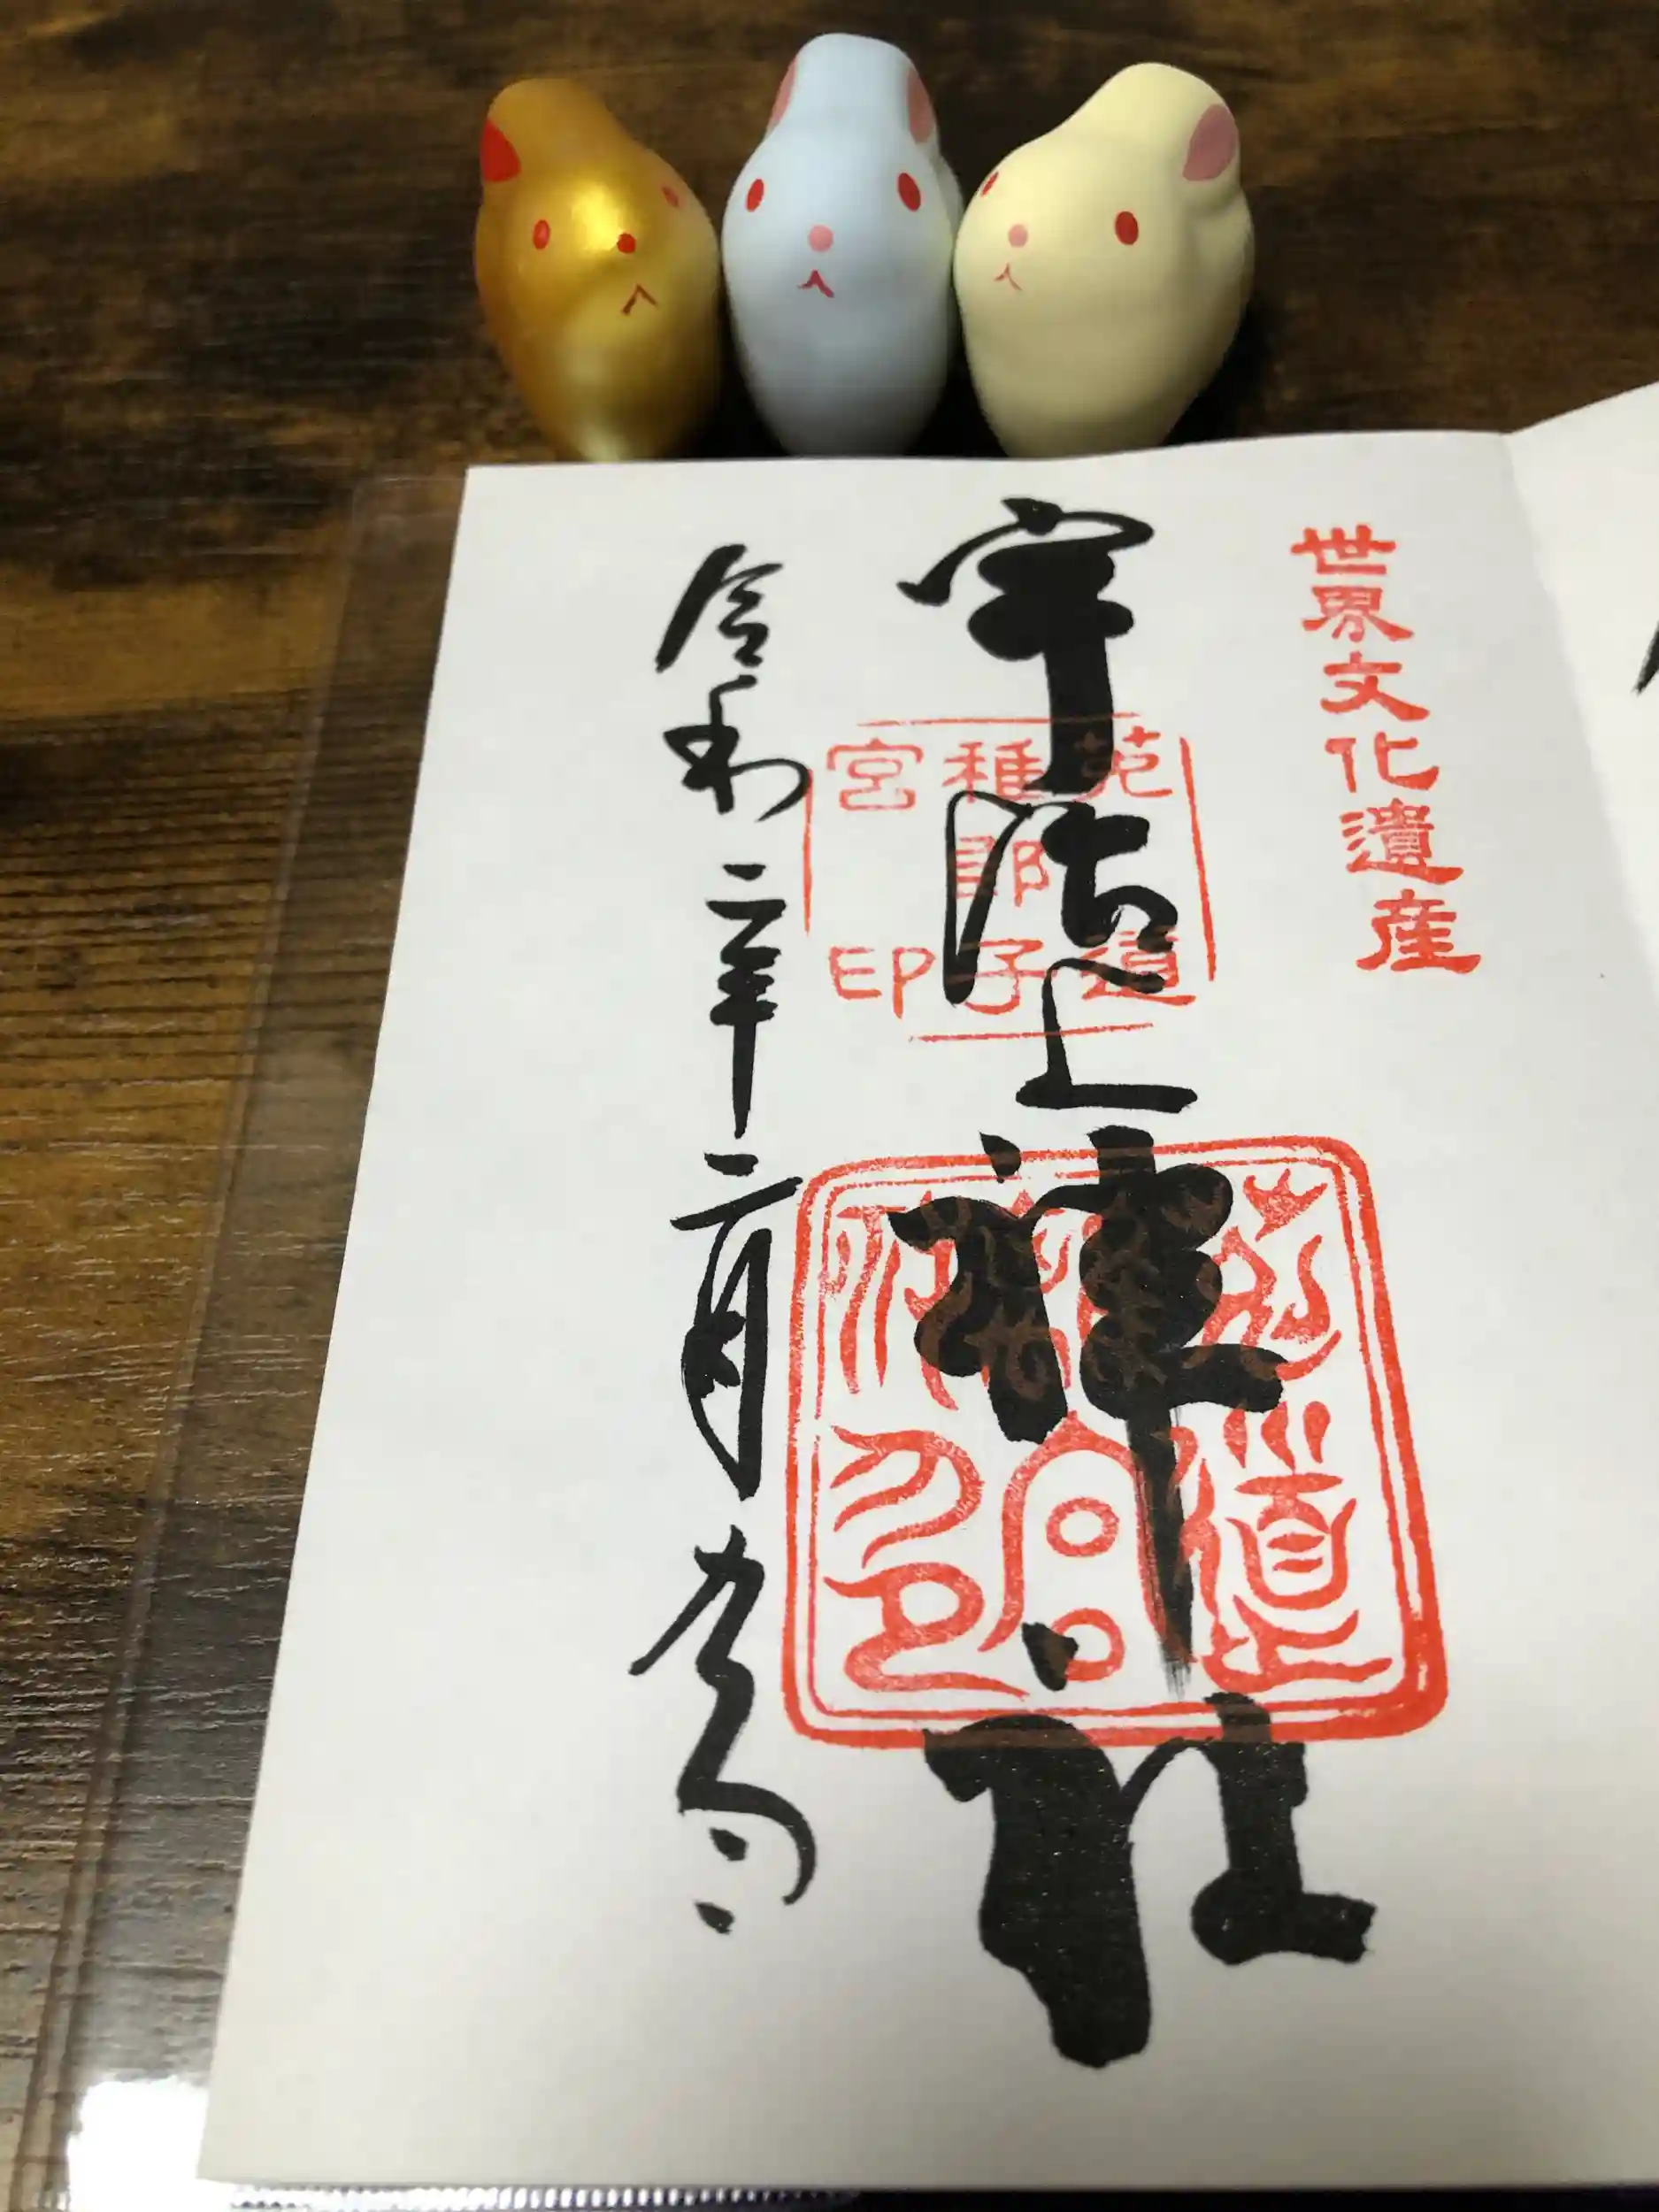 世界文化遺産
宇治上神社
菟道
稚郎子
宮印
令和二年二月九日